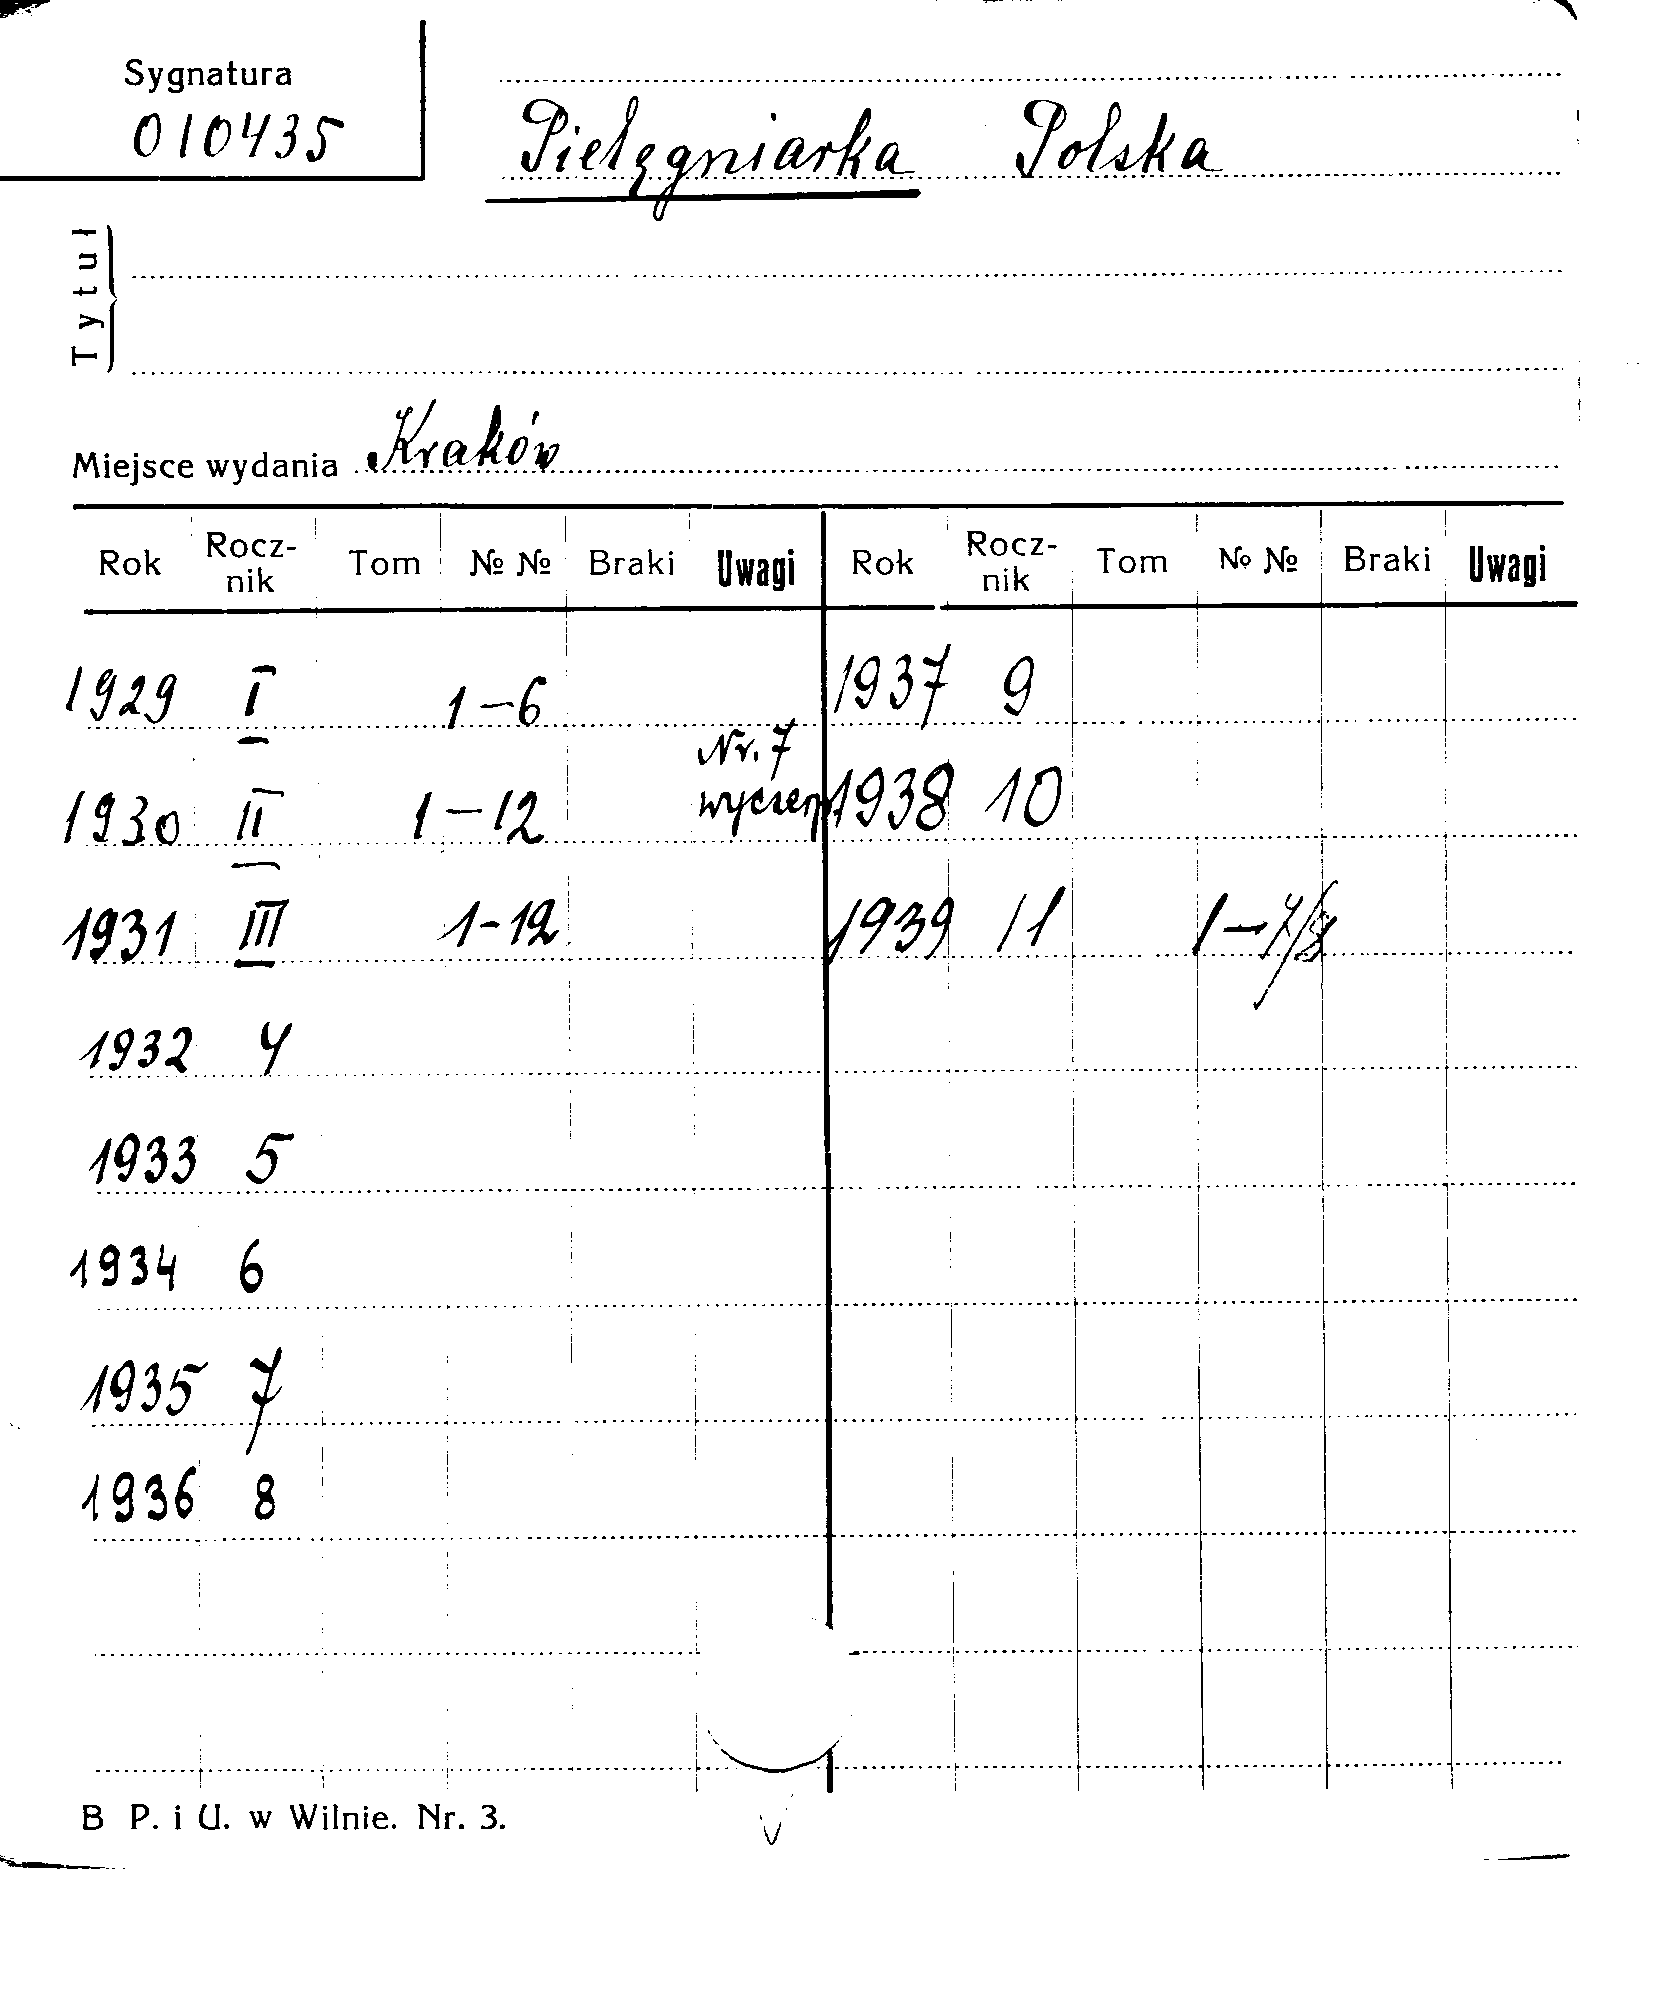 Sygnatura
010435
Pielęgniarka Polska
Tytuł
Miejsce wydania Kraków
Rok Rocz-nik Tom № № Braki Uwagi Rok Rocz-nik Tom № № Braki Uwagi
1929 I 1-6 1937 9
Nr. 7
1930 II 1-12 wyczerp 1938 10
1931 III 1-12 1939 11 1-7/8
1932 4
1933 5
1934 6
1935 7
1936 8
B P. i U. w Wilnie. Nr. 3.